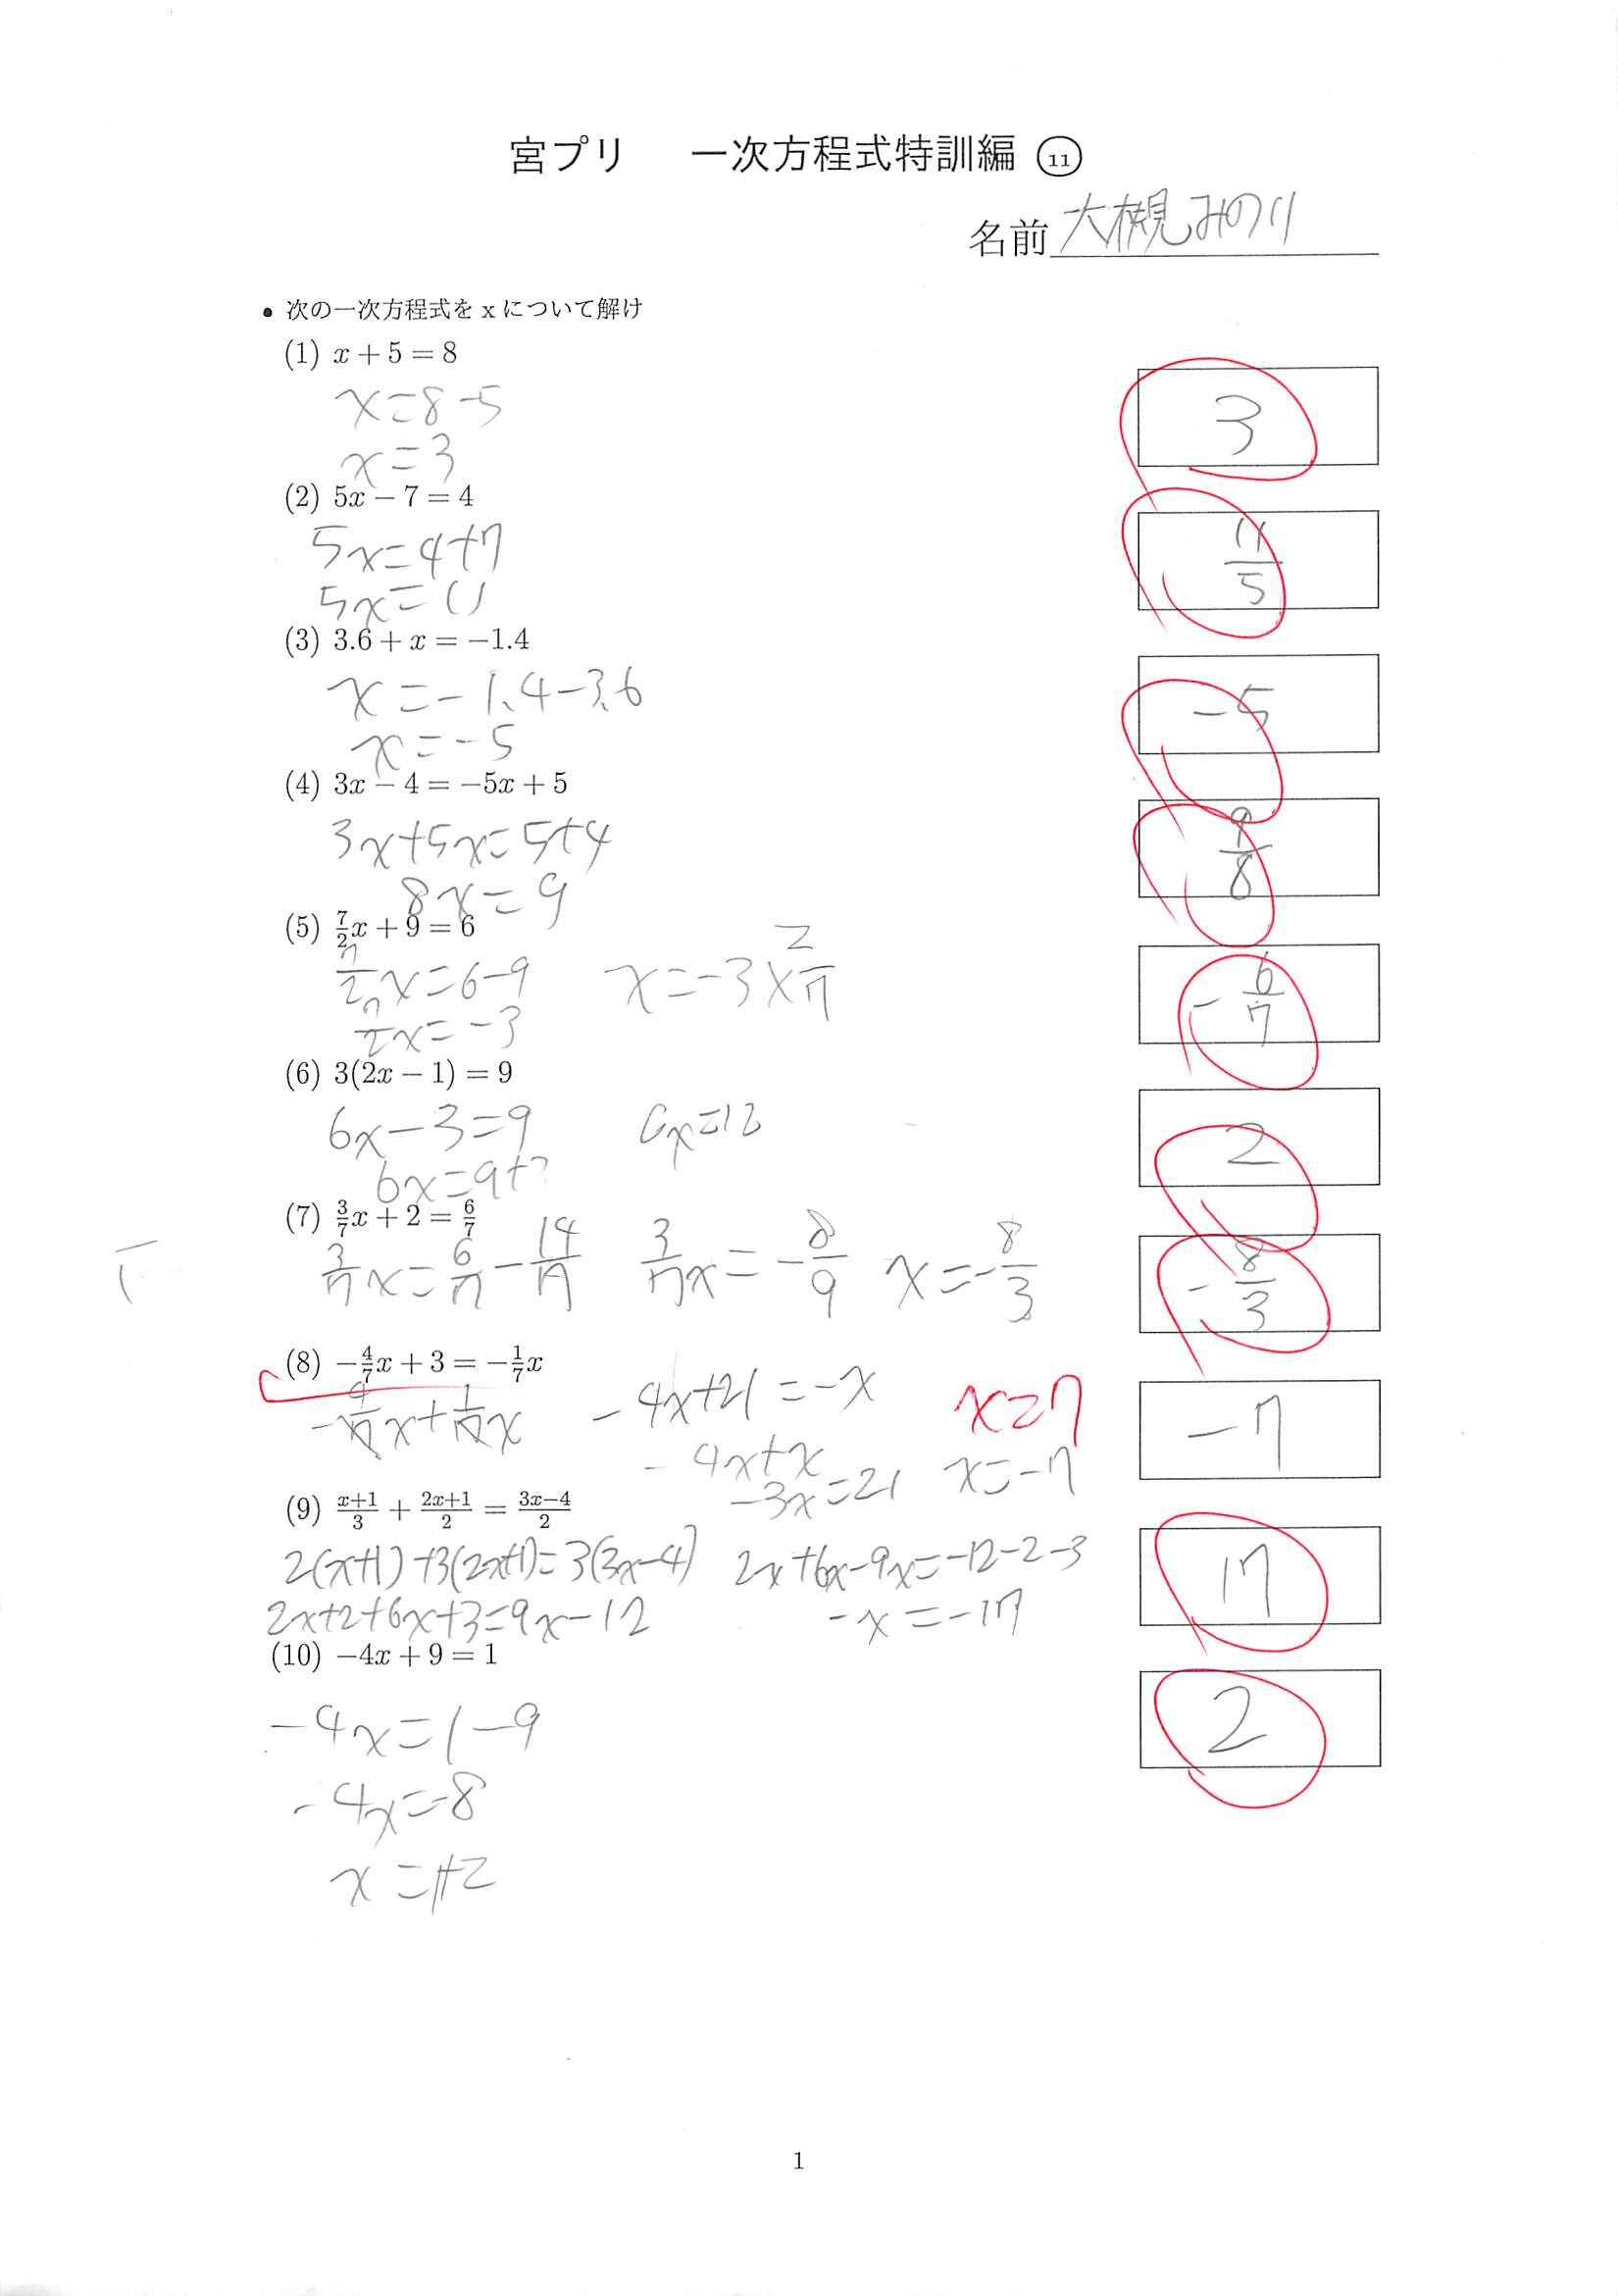 宮プリ 一次方程式特訓編 ⑪
名前 大槻みのり
• 次の一次方程式を x について解け
(1) x + 5 = 8
x=8-5
x=3
3
(2) 5x − 7 = 4
5x=4+7
5x=11
11/5
(3) 3.6 + x = −1.4
x=-1.4-3.6
x=-5
-5
(4) 3x − 4 = −5x + 5
3x+5x=5+4
8x=9
9/8
(5) 7/2 x + 9 = 6
7/2 x=6-9 x=-3×2/7
7/2 x=-3
-6/7
(6) 3(2x − 1) = 9
6x-3=9 6x=12
6x=9+3
2
(7) 3/7 x + 2 = 6/7
3/7 x=6/7-14/7 3/7 x=-8/9 x=-8/3
-8/3
(8) −4/7 x + 3 = −1/7 x
-4/7 x+1/7 x -4x+21=-x x=7
-4x+x
-3x=21 x=-7
-7
(9) (x+1)/3 + (2x+1)/2 = (3x−4)/2
2(x+1)+3(2x+1)=3(3x-4) 2x+6x-9x=-12-2-3
2x+2+6x+3=9x-12 -x=-17
17
(10) −4x + 9 = 1
-4x=1-9
-4x=-8
x=+2
2
1